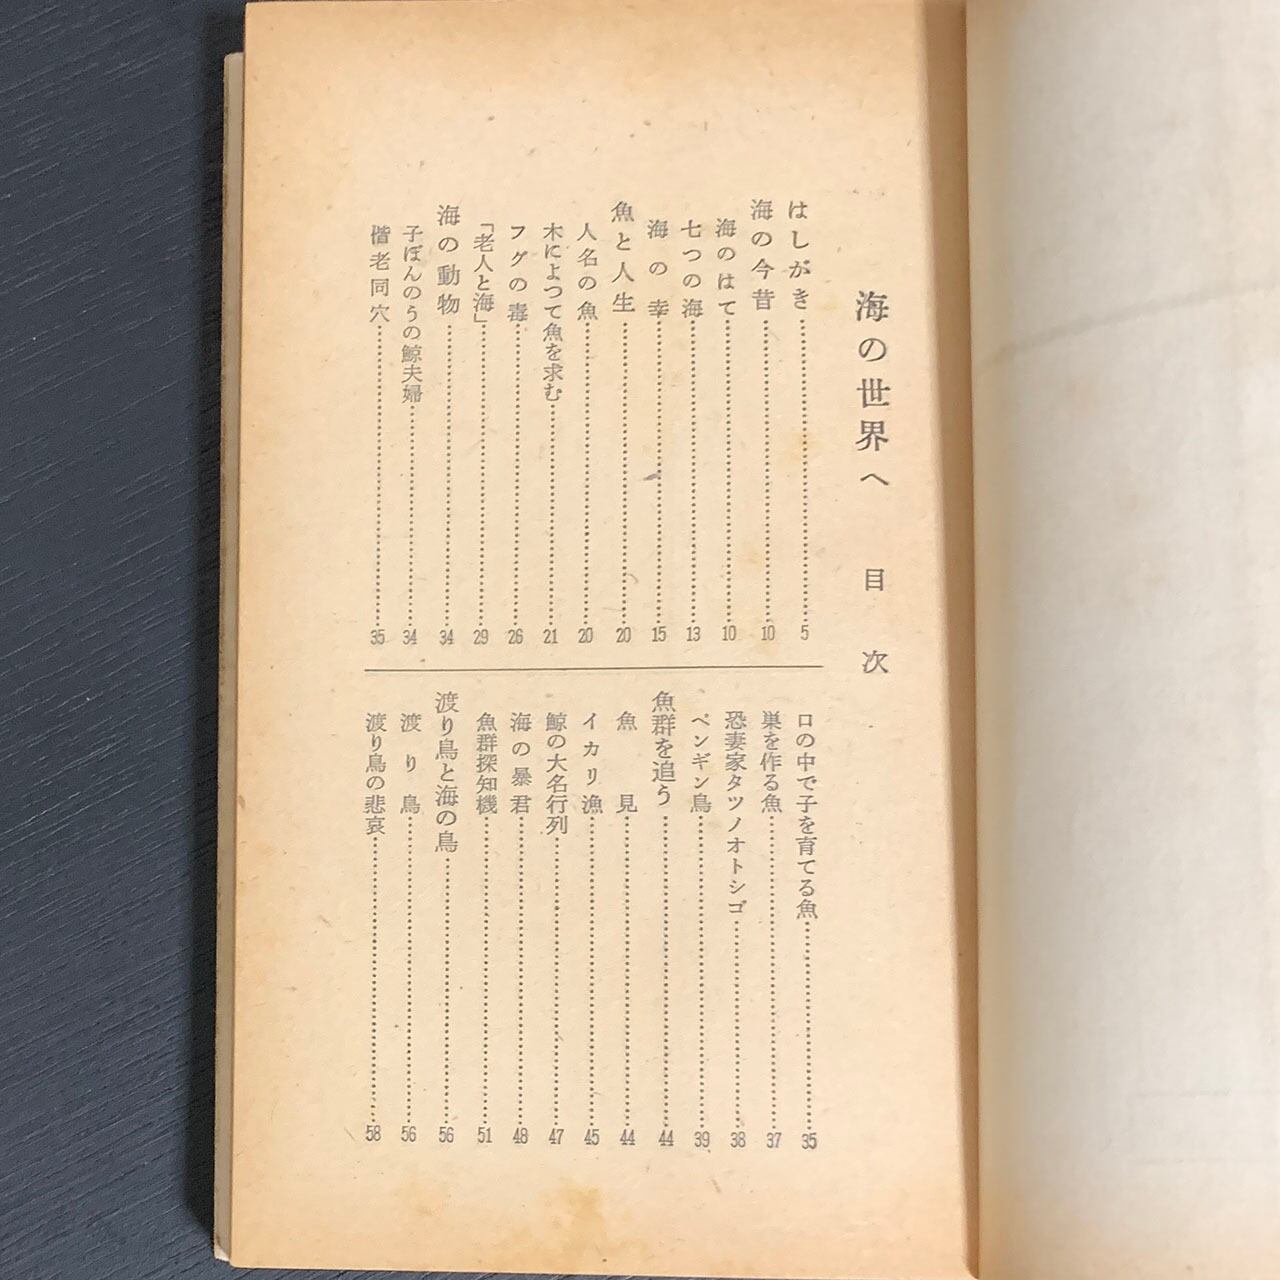 海の世界へ　目次
はしがき……5
海の今昔……10
海のはて……10
七つの海……13
海の幸……15
魚と人生……20
人名の魚……20
木によつて魚を求む……21
フグの毒……26
「老人と海」……29
海の動物……34
子ぼんのうの鯨夫婦……34
偕老同穴……35
口の中で子を育てる魚……35
巣を作る魚……37
恐妻家タツノオトシゴ……38
ペンギン鳥……39
魚群を追う……44
魚見……44
イカリ漁……45
鯨の大名行列……47
海の暴君……48
魚群探知機……51
渡り鳥と海の鳥……56
渡り鳥……56
渡り鳥の悲哀……58